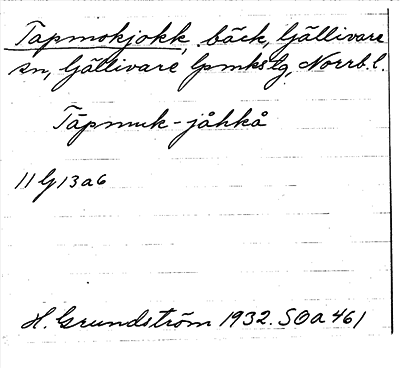 Tapmokjokk, bäck, Gällivare
sn, Gällivare lpmkslg, Norrb. l.
Tāpmuk-jåhkå
11 G 13 a 6
H. Grundström 1932. SOa 461